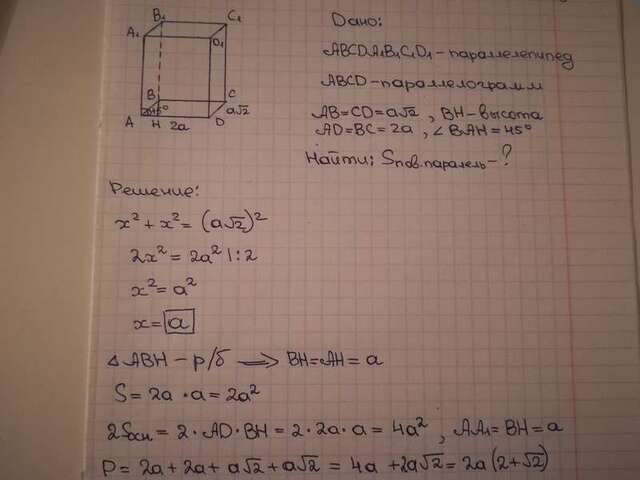 B₁ C₁
A₁ D₁
B C
45° a√2
A H 2a D
Дано:
ABCDA₁B₁C₁D₁ - параллелепипед
ABCD - параллелограмм
AB=CD=a√2 , BH - высота
AD=BC=2a , ∠BAH=45°
Найти: Sпов.паралель - ?
Решение:
x² + x² = (a√2)²
2x² = 2a² |:2
x² = a²
x = a
△ABH - р/б ⟹ BH=AH=a
S = 2a · a = 2a²
2Sосн = 2 · AD · BH = 2 · 2a · a = 4a² , AA₁=BH=a
P = 2a + 2a + a√2 + a√2 = 4a + 2a√2 = 2a(2+√2)